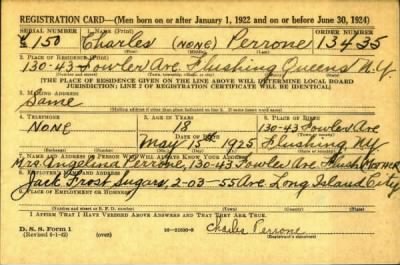 REGISTRATION CARD—(Men born on or after January 1, 1922 and on or before June 30, 1924)
SERIAL NUMBER 1. NAME (Print) ORDER NUMBER
150 Charles (NONE) Perrone 13435
2. PLACE OF RESIDENCE (Print)
130-43 Fowler Ave. Flushing Queens N.Y.
[THE PLACE OF RESIDENCE GIVEN ON THE LINE ABOVE WILL DETERMINE LOCAL BOARD
JURISDICTION; LINE 2 OF REGISTRATION CERTIFICATE WILL BE IDENTICAL]
3. MAILING ADDRESS
Same
4. TELEPHONE 5. AGE IN YEARS
NONE 18 130-43 Fowler Ave
May 15 1925 Flushing NY
7. NAME AND ADDRESS OF PERSON WHO WILL ALWAYS KNOW YOUR ADDRESS
Mrs. Angelina Perrone, 130-43 Fowler Ave. Flush MOTHER
8. EMPLOYER'S NAME AND ADDRESS
Jack Frost Sugars, 2-03-55 Ave. Long Island City
9. PLACE OF EMPLOYMENT OR BUSINESS
I AFFIRM THAT I HAVE VERIFIED ABOVE ANSWERS AND THAT THEY ARE TRUE.
D. S. S. Form 1
(Revised 6-1-42) (over) Charles Perrone
(Registrant's signature)